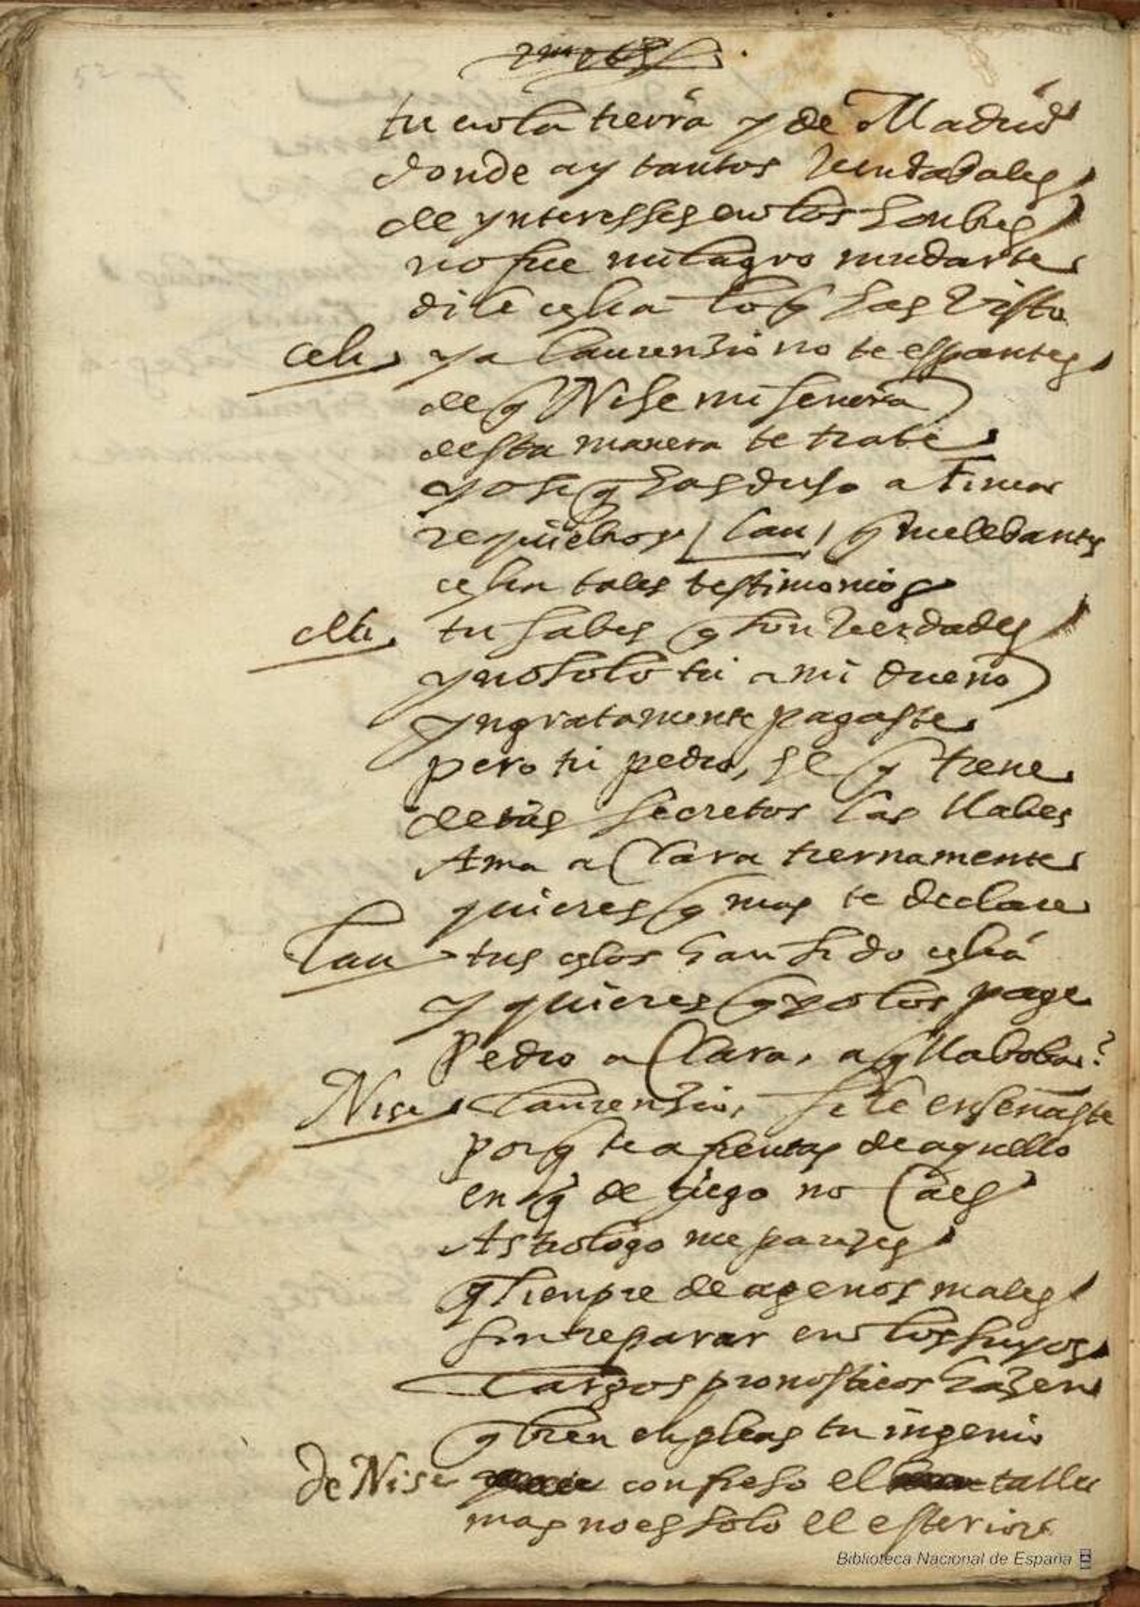 tu en la tierra y de Madrid
donde ay tantos vendabales
de yntereses en los honbres
no fue milagro mudarte
dile celia lo q has visto
Celi. ya laurenzio no te espantes
de q Nise mi señora
desta manera te trate
yo se q has dicho a Finea
requiebros / Lau / q me lebantes
celia tales testimonios
Celi. tu sabes q son verdades
y no solo tu a mi dueño
yngratamente pagaste
pero tu pedro, el q tiene
de tus secretos las llabes
Ama a Clara tiernamente
quieres q mas te declare
Lau tus celos han sido celia
y quieres q yo los page
Pedro a Clara, a q lla boba?
Nise laurenzio, si le enseñaste
por q te afrentas de aquello
en q de ziego no Caes
Astrologo me parezes
q sienpre de agenos males
sin reparar en los suyos
largos pronosticos hazen
q bien enpleas tu ingenio
de Nise confieso el talle
mas no es solo el esterior
Biblioteca Nacional de España